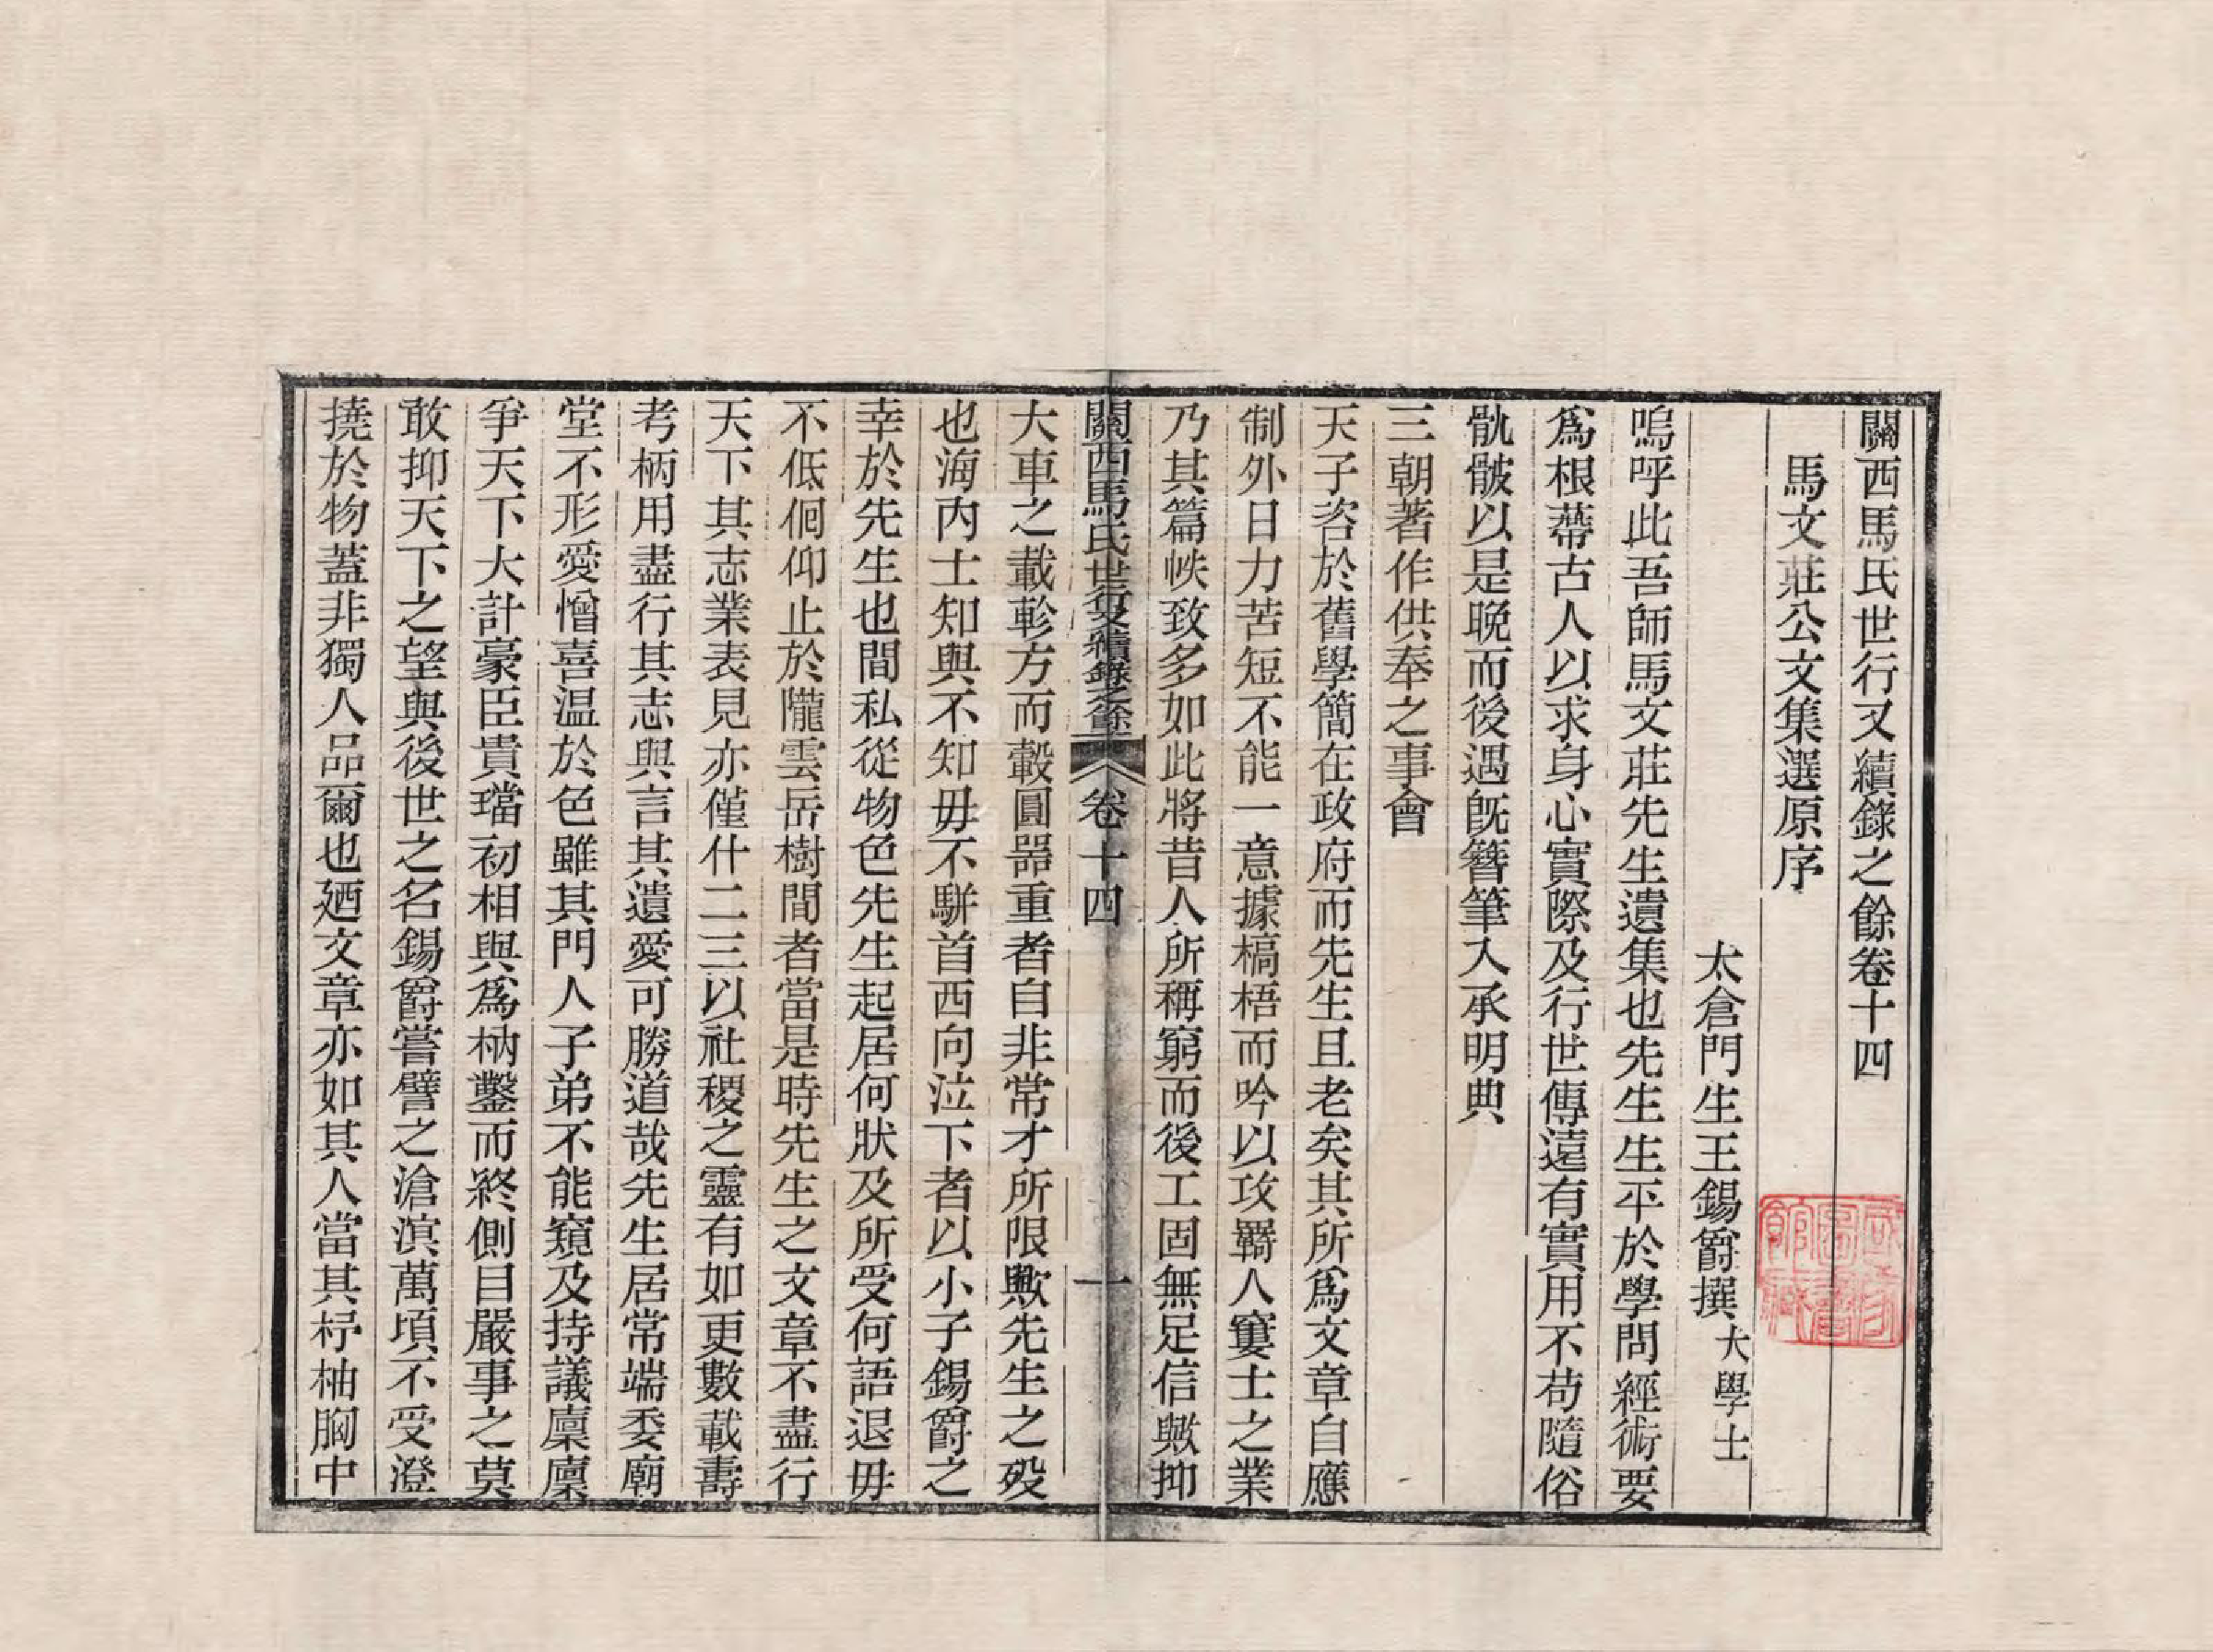 關西馬氏世行又續錄之餘卷十四
馬文莊公文集選原序
太倉門生王錫爵撰大學士
嗚呼此吾師馬文莊先生遺集也先生生平於學問經術要
爲根蔕古人以求身心實際及行世傳遠有實用不苟隨俗
骫骳以是晩而後遇旣簪筆入承明典
三朝著作供奉之事會
天子咨於舊學簡在政府而先生且老矣其所爲文章自應
制外日力苦短不能一意據槁梧而吟以攻羇人窶士之業
乃其篇帙致多如此將昔人所稱窮而後工固無足信歟抑
關西馬氏世行又續錄之餘 卷十四 一
大車之載軫方而轂圓器重者自非常才所限歟先生之歿
也海內士知與不知毋不騈首西向泣下者以小子錫爵之
幸於先生也間私從物色先生起居何狀及所受何語退毋
不低佪仰止於隴雲岳樹間者當是時先生之文章不盡行
天下其志業表見亦僅什二三以社稷之靈有如更數載壽
考柄用盡行其志與言其遺愛可勝道哉先生居常端委廟
堂不形愛憎喜溫於色雖其門人子弟不能窺及持議廩廩
爭天下大計豪臣貴璫初相與爲枘鑿而終側目嚴事之莫
敢抑天下之望與後世之名錫爵嘗譬之滄溟萬頃不受澄
撓於物蓋非獨人品爾也廼文章亦如其人當其杼柚胸中